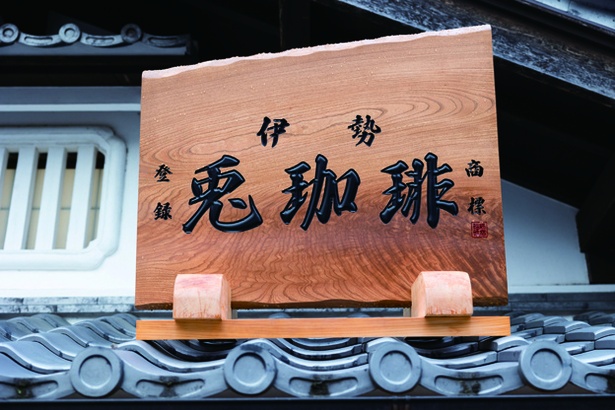 伊勢
兎珈琲
登録
商標